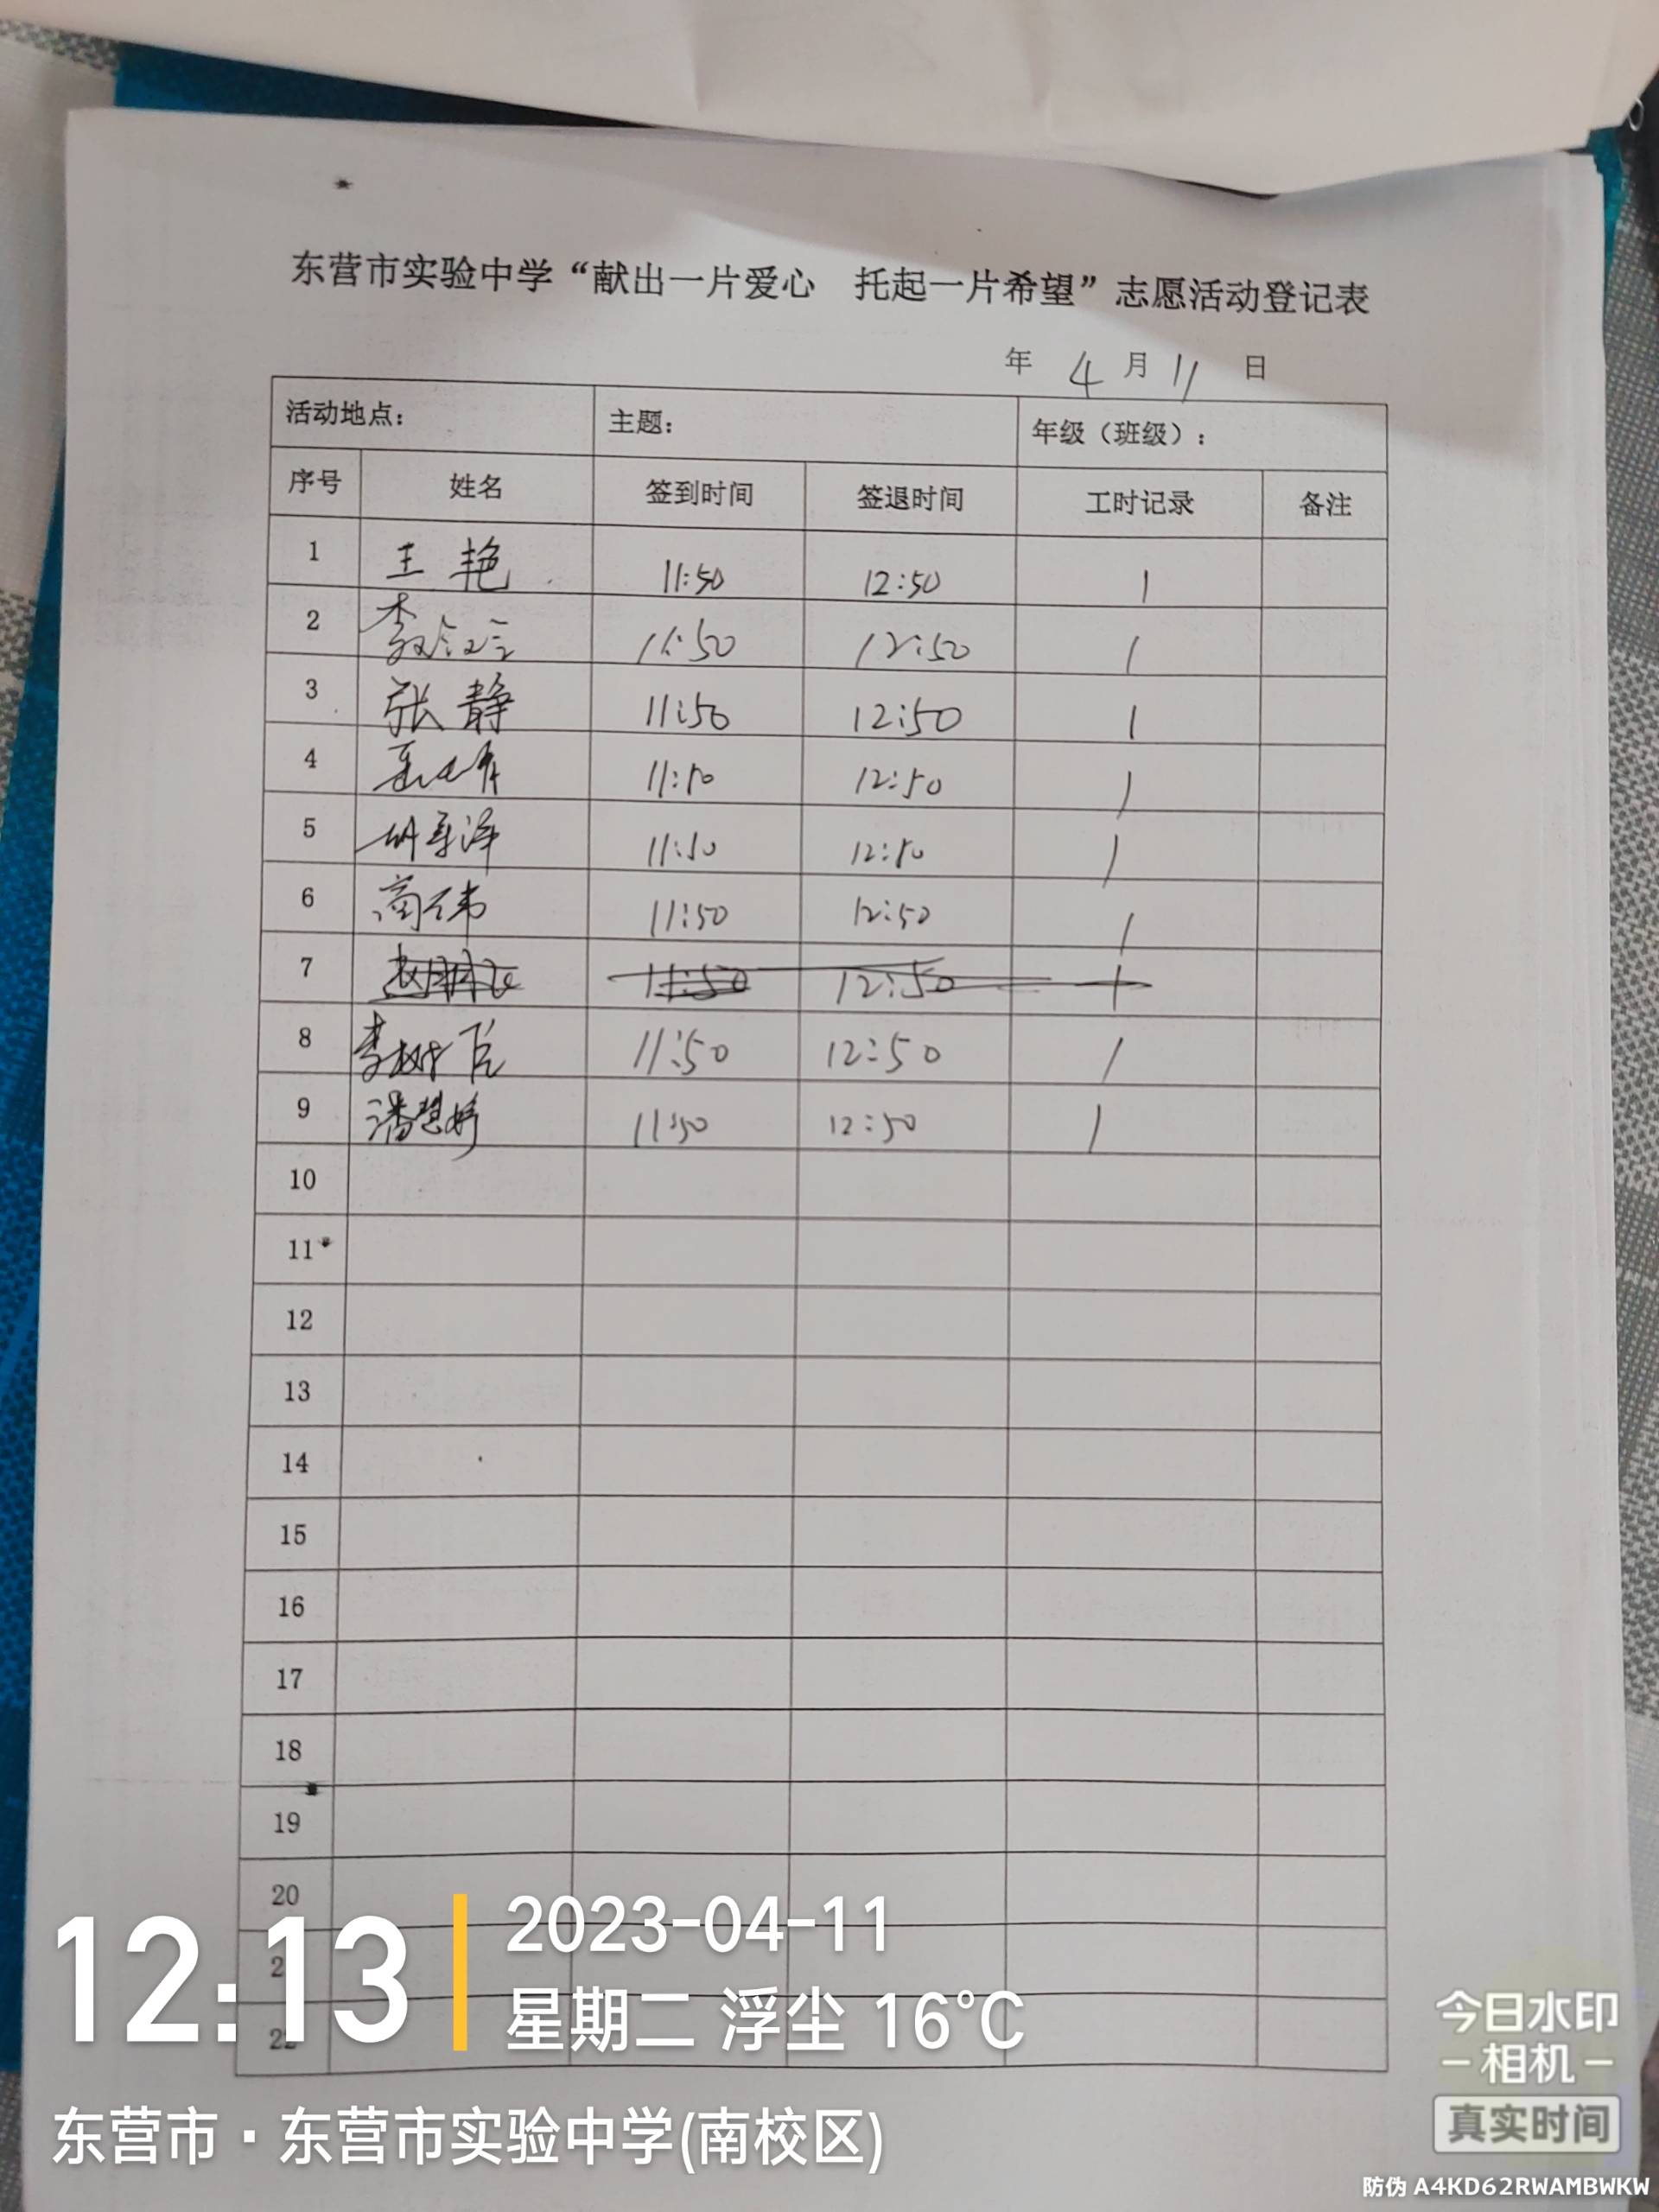 东营市实验中学“献出一片爱心 托起一片希望”志愿活动登记表
年 4 月 11 日
活动地点： 主题： 年级（班级）：
序号 姓名 签到时间 签退时间 工时记录 备注
1 王艳 11:50 12:50 1
2 11:50 12:50 1
3 张静 11:50 12:50 1
4 11:50 12:50 1
5 11:50 12:50 1
6 高伟 11:50 12:50 1
7 11:50 12:50 1
8 李树 11:50 12:50 1
9 潘慧婷 11:50 12:50 1
10
11
12
13
14
15
16
17
18
19
20
2
22
12:13
2023-04-11
星期二 浮尘 16°C
东营市·东营市实验中学(南校区)
今日水印
相机
真实时间
防伪 A4KD62RWAMBWKW